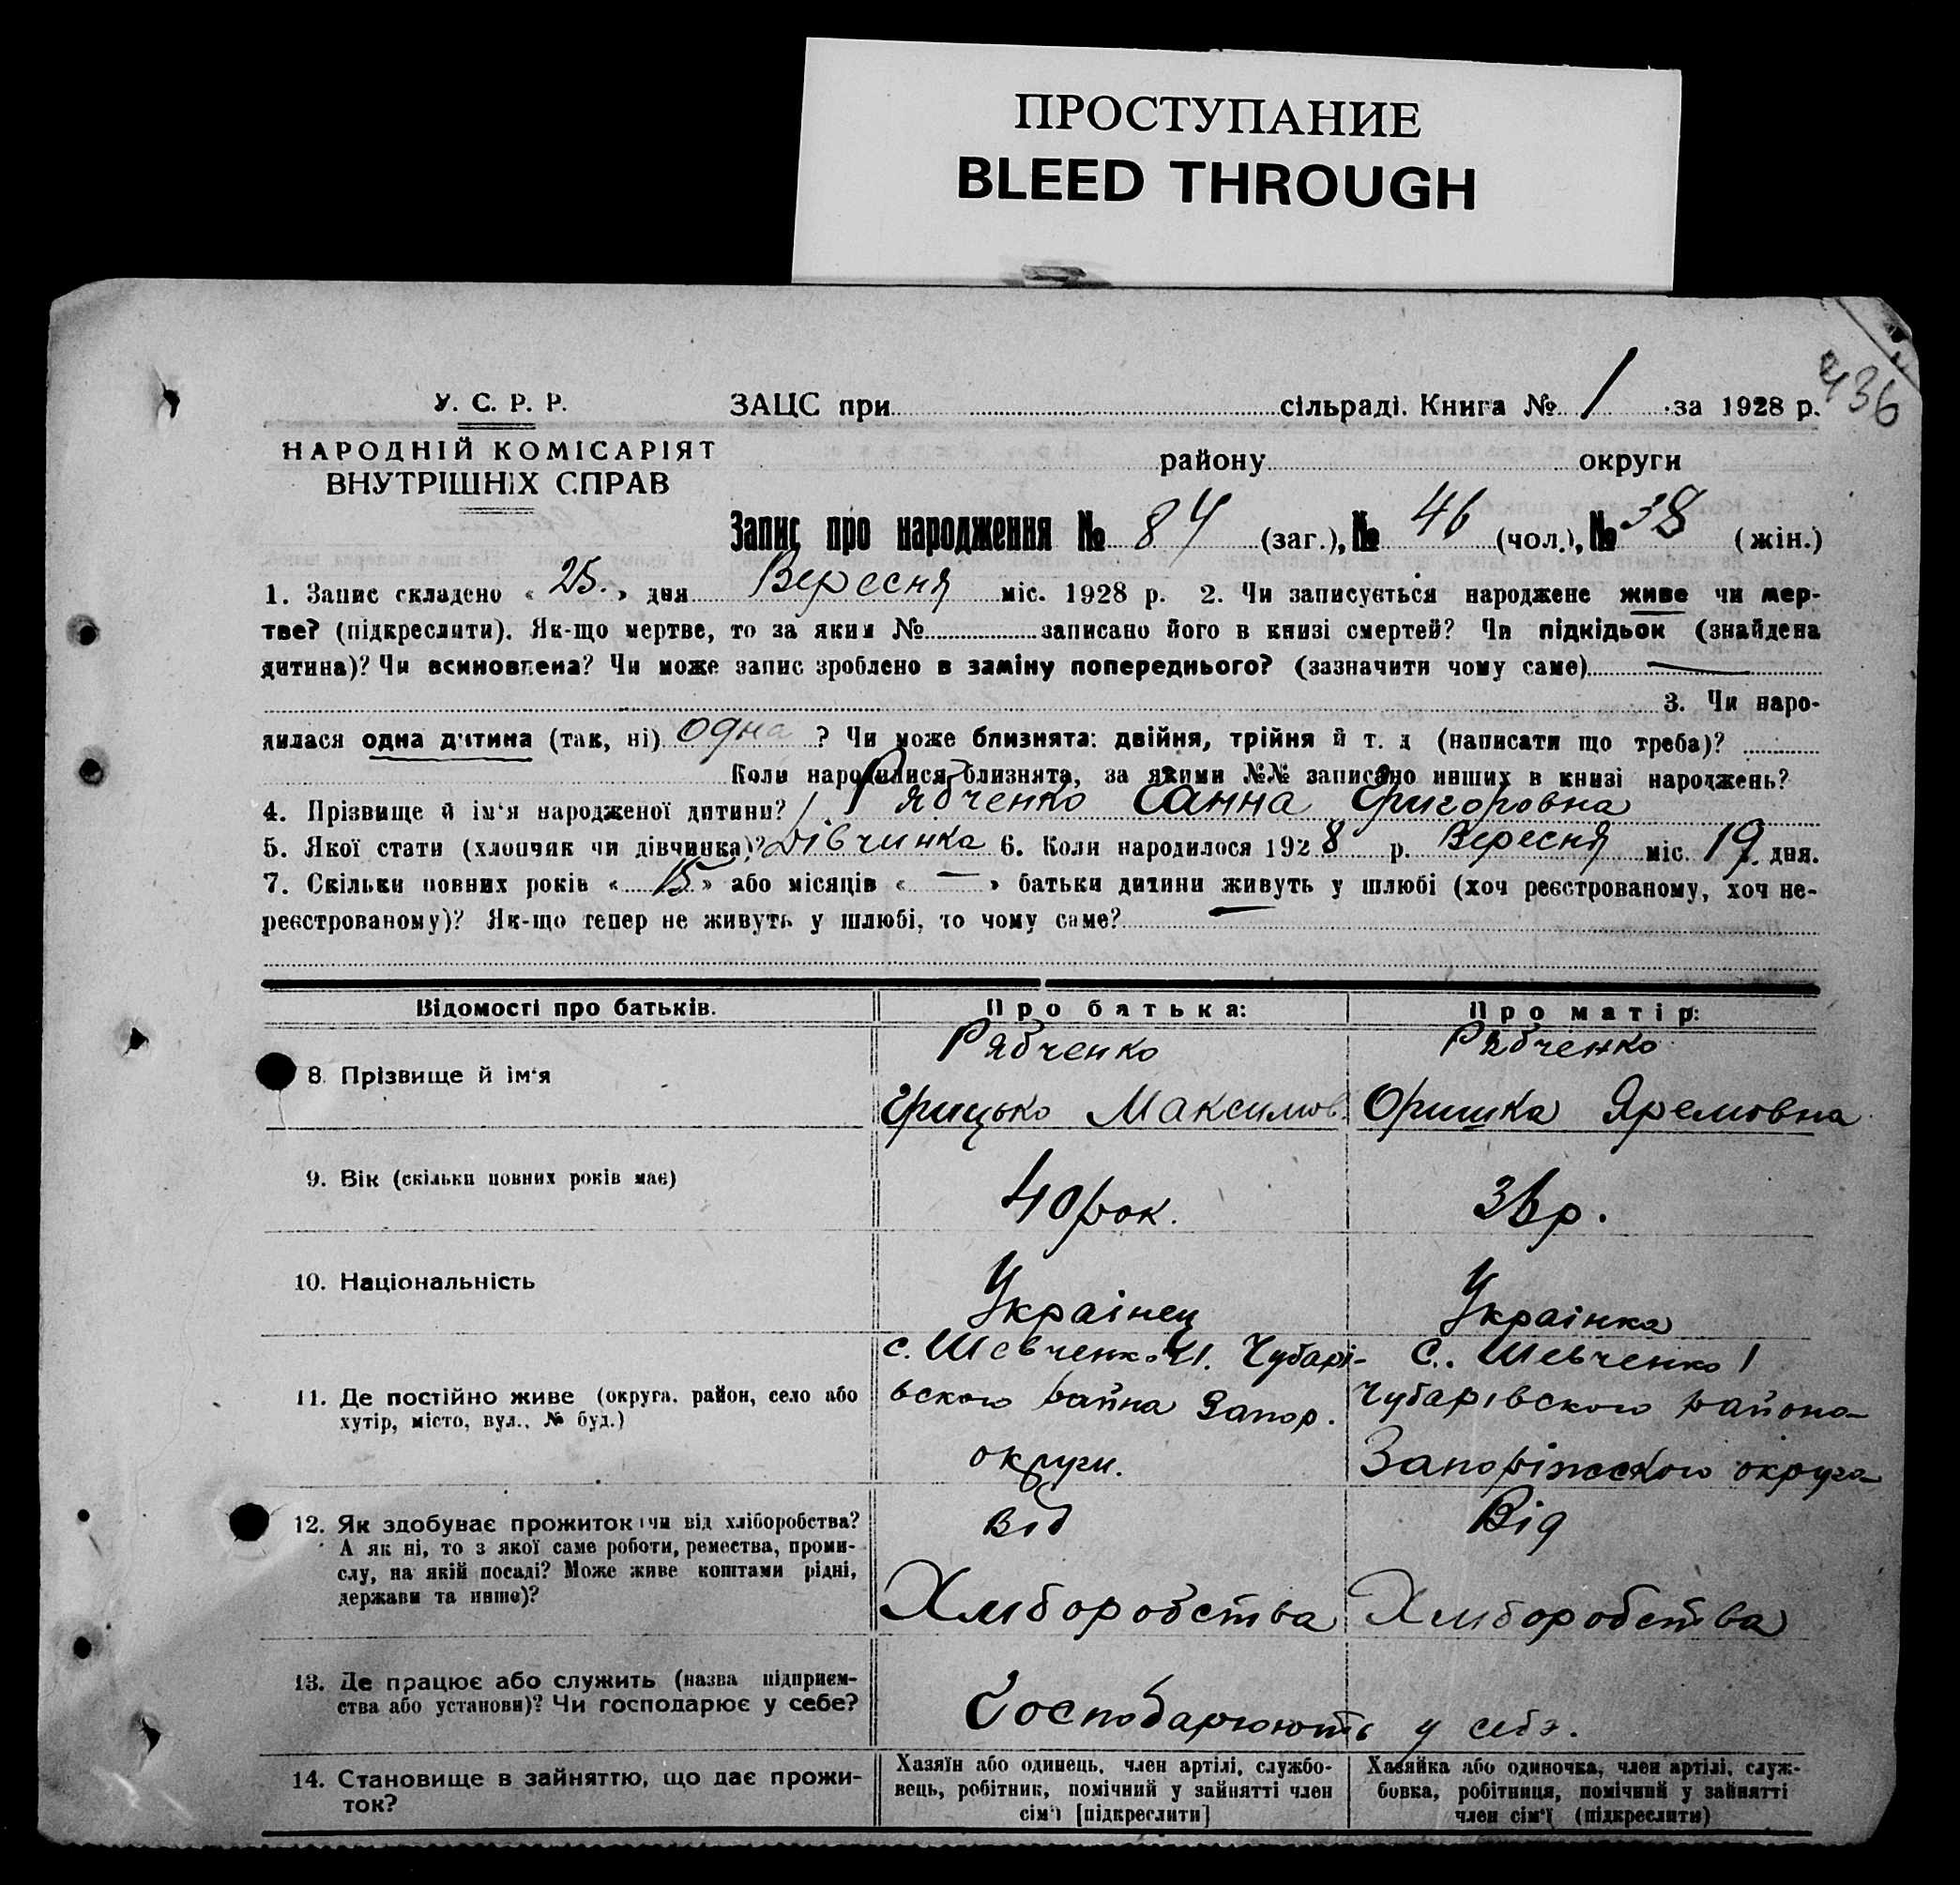 ПРОСТУПАНИЕ
BLEED THROUGH
436
У. С. Р. Р.
НАРОДНІЙ КОМІСАРІЯТ
ВНУТРІШНІХ СПРАВ
ЗАЦС при сільраді. Книга № 1 за 1928 р.
району округи
Запис про народження № 84 (заг.), № 46 (чол.), № 38 (жін.)
1. Запис складено « 25. » дня Вересня міс. 1928 р. 2. Чи записується народжене живе чи мер-
тве? (підкреслити). Як-що мертве, то за яким № записано його в книзі смертей? Чи підкідьок (знайдена
дитина)? Чи всиновлена? Чи може запис зроблено в заміну попереднього? (зазначити чому саме) —
3. Чи наро-
дилася одна дитина (так, ні) одна ? Чи може близнята: двійня, трійня й т. д (написати що треба)?
Коли народилися близнята, за якими №№ записано инших в книзі народжень?
4. Прізвище й ім'я народженої дитини? Рябченко Ганна Григоровна
5. Якої стати (хлопчик чи дівчинка)? Дівчинка 6. Коли народилося 1928 р. Вересня міс. 19. дня.
7. Скільки повних років « 15 » або місяців « — » батьки дитини живуть у шлюбі (хоч реєстрованому, хоч не-
реєстрованому)? Як-що тепер не живуть у шлюбі, то чому саме?
Відомості про батьків. Про батька: Про матір:
8. Прізвище й ім'я
Рябченко
Грицько Максимов.
Рябченко
Оришка Яремовна
9. Вік (скільки повних років має)
40 рок.
36 р.
10. Національність
Українец
Українка
11. Де постійно живе (округа, район, село або
хутір, місто, вул., № буд.)
с. Шевченко №1. Чубарі-
вского район Запор.
округи.
с. Шевченко 1
Чубарівского района
Запоріжского округа
12. Як здобуває прожиток (чи від хліборобства?
А як ні, то з якої саме роботи, ремества, проми-
слу, на якій посаді? Може живе коштами рідні,
держави та инше)?
від
Хліборобства
Від
Хліборобства
13. Де працює або служить (назва підприєм-
ства або установи)? Чи господарює у себе?
Господарюють у себе.
14. Становище в зайняттю, що дає прожи-
ток?
Хазяїн або одинець, член артілі, службо-
вець, робітник, помічний у зайнятті член
сім'ї [підкреслити]
Хазяйка або одиночка, член артілі, служ-
бовка, робітниця, помічний у зайнятті
член сім'ї (підкреслити)